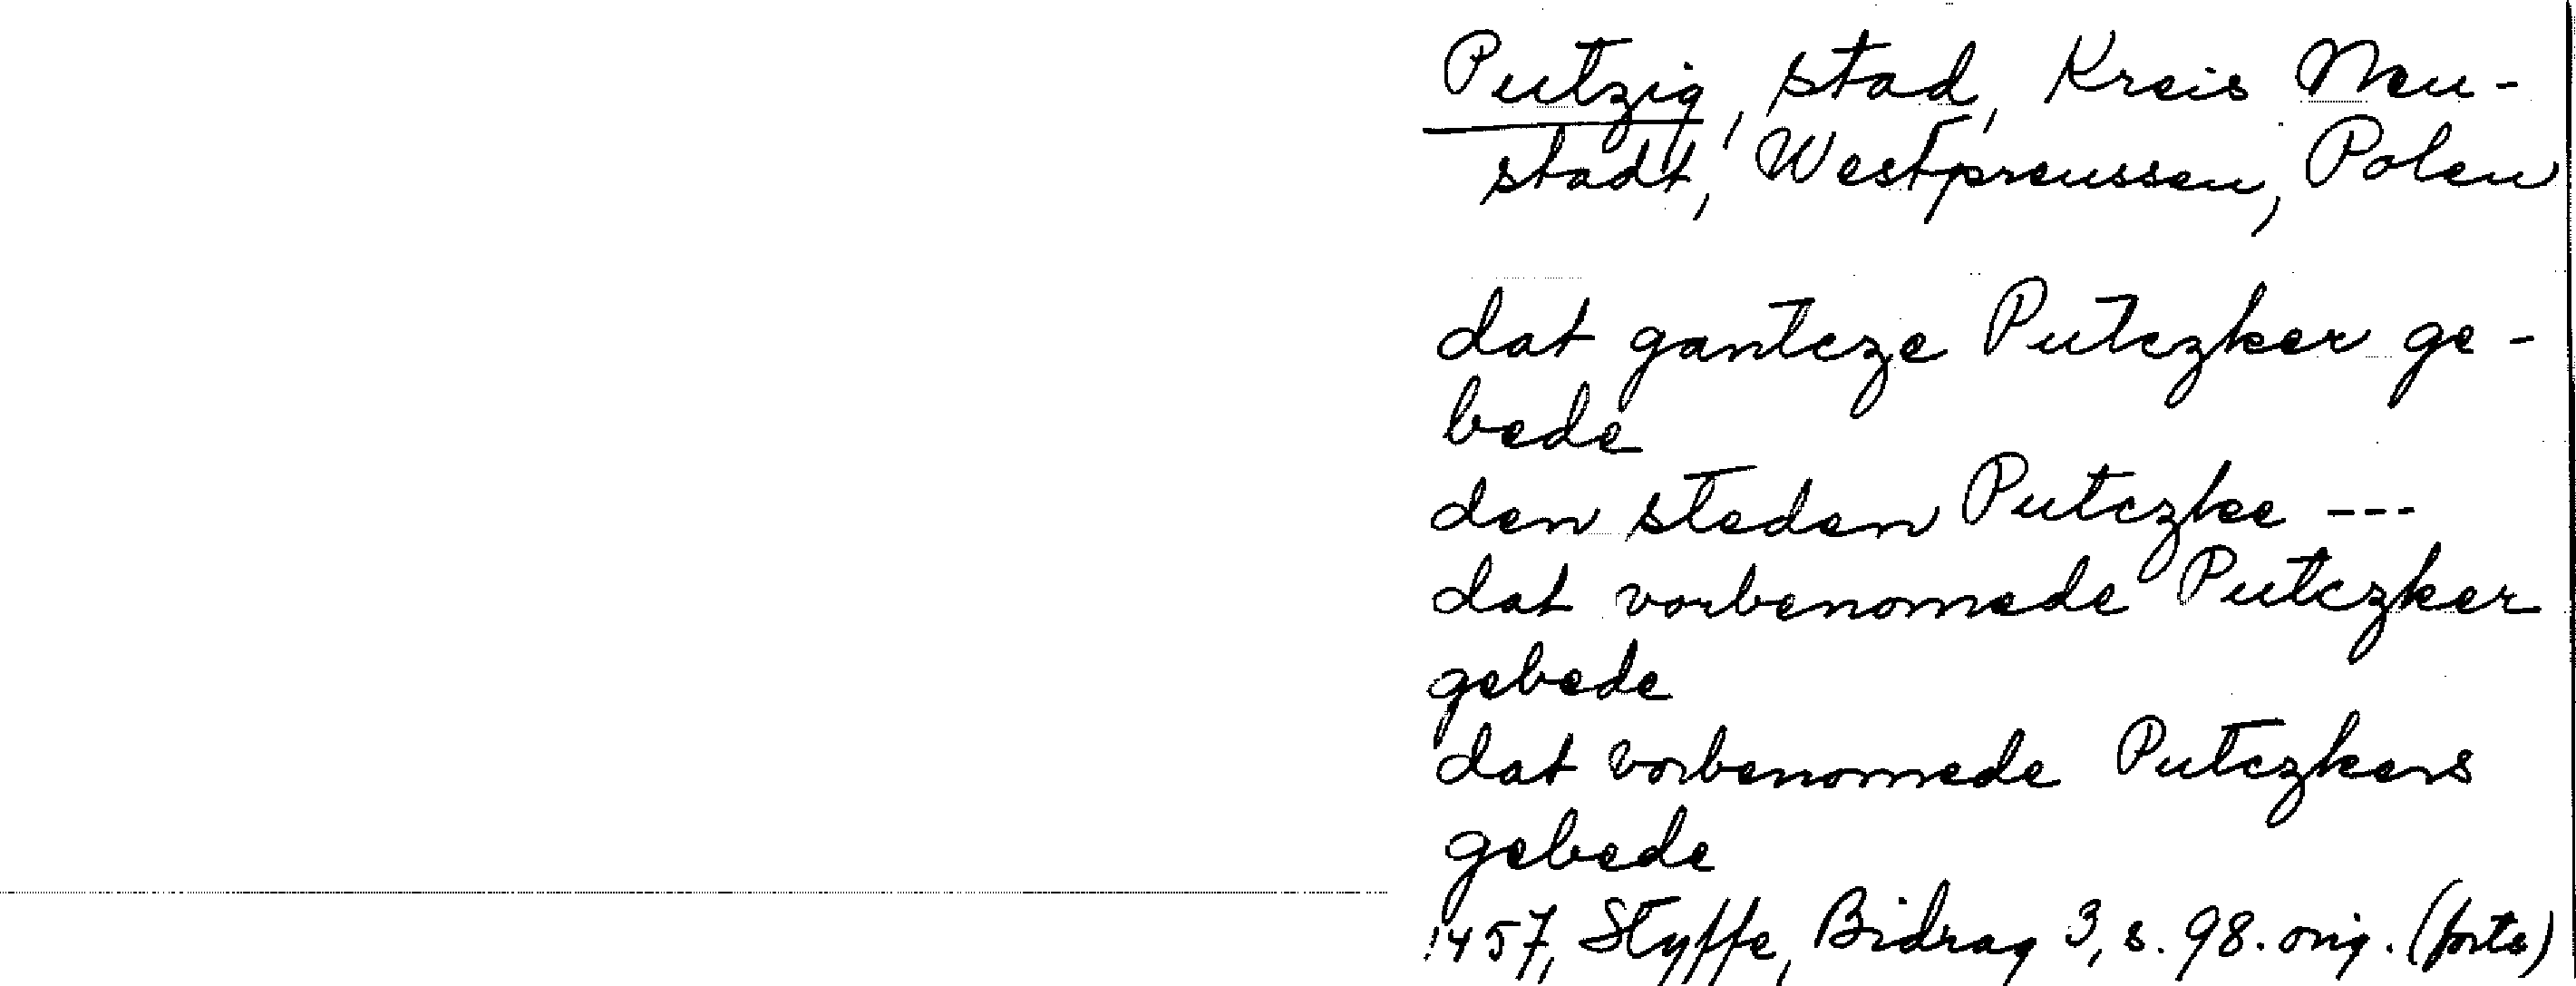 Putzig, stad, Kreis Neu-
stadt, Westpreussen, Polen
dat gantcze Putczker ge-
bede
den steden Putczke ---
dat vorbenomede Putczker
gebede
dat vorbenomede Putczkers
gebede
1457, Styffe, Bidrag 3, s. 98. orig. (forts)